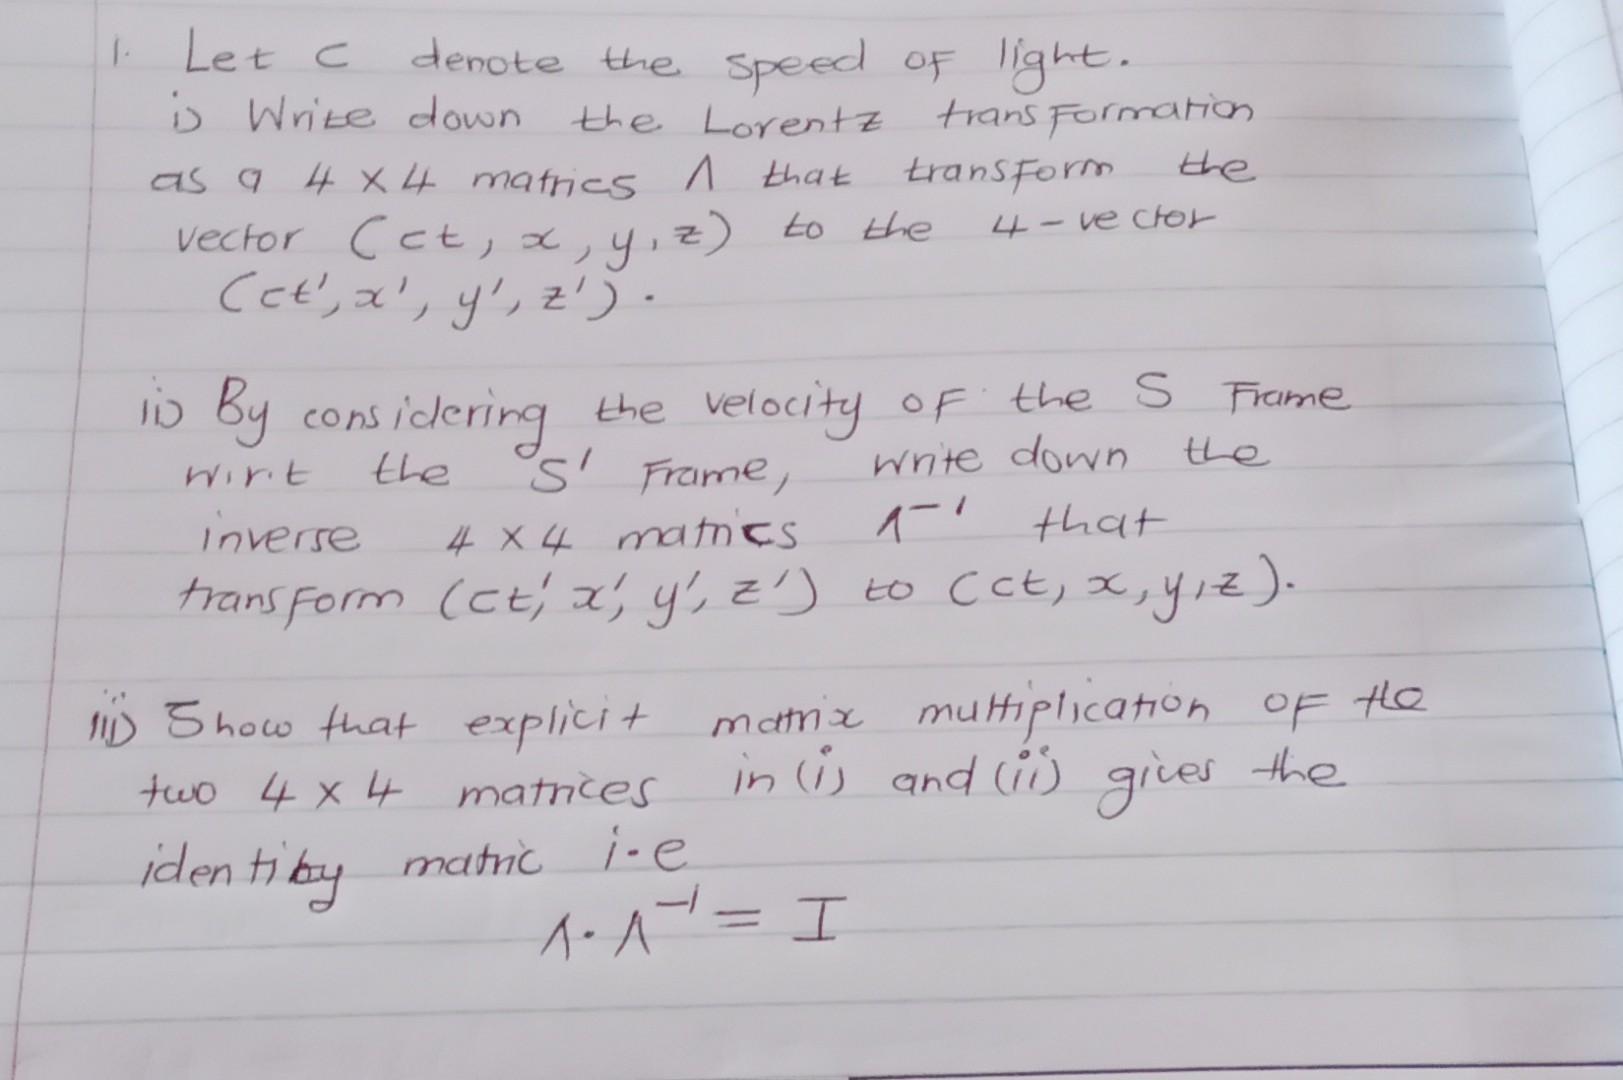 1. Let C denote the speed of light.
i) Write down the Lorentz transformation
as a 4 x 4 matrics Λ that transform the
vector (ct, x, y, z) to the 4-vector
(ct', x', y', z').
ii) By considering the velocity of the S Frame
w.r.t the S' Frame, write down the
inverse 4 x 4 matrics Λ⁻¹ that
transform (ct', x', y', z') to (ct, x, y, z).
iii) Show that explicit matrix multiplication of the
two 4 x 4 matrices in (i) and (ii) gives the
identity matric i.e
Λ·Λ⁻¹ = I